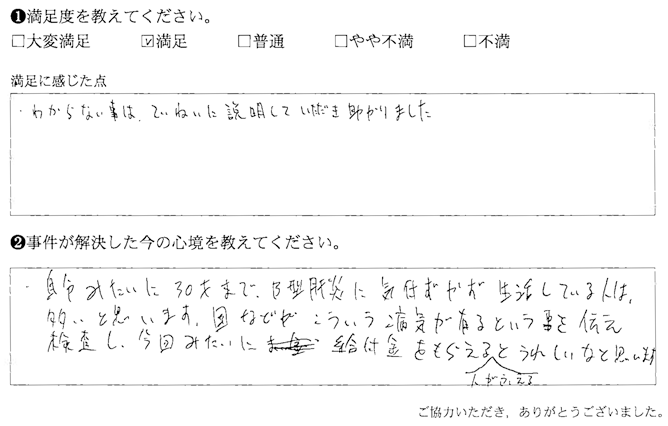 ❶満足度を教えてください。
□大変満足 ☑満足 □普通 □やや不満 □不満
満足に感じた点
・わからない事は、ていねいに説明していただき助かりました
❷事件が解決した今の心境を教えてください。
・自分みたいに30才まで、B型肝炎に気付ずかず生活している人は、
多いと思います。国などが こういう病気が有るという事を伝え
検査し、今回みたいに 給付金をもらえると うれしいなと思います
人がふえる
ご協力いただき，ありがとうございました。